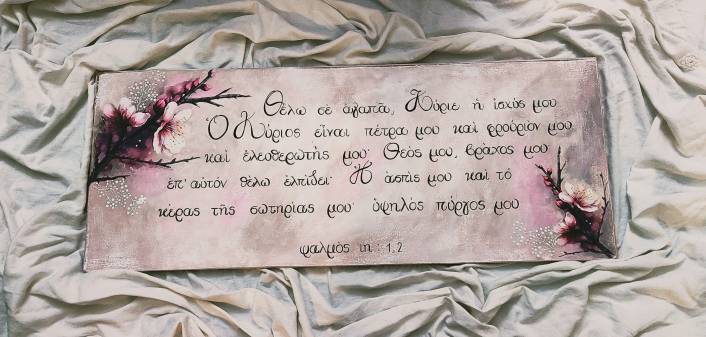 Θέλω σέ ἀγαπᾶ, Κύριε ἡ ἰσχύς μου
Ὁ Κύριος εἶναι πέτρα μου καί φρούριόν μου
καί ἐλευθερωτής μου· Θεός μου, βράχος μου·
ἐπ' αὐτόν θέλω ἐλπίζει· Ἡ ἀσπίς μου καί τό
κέρας τῆς σωτηρίας μου· ὑψηλός πύργος μου
ψαλμός ιη : 1,2